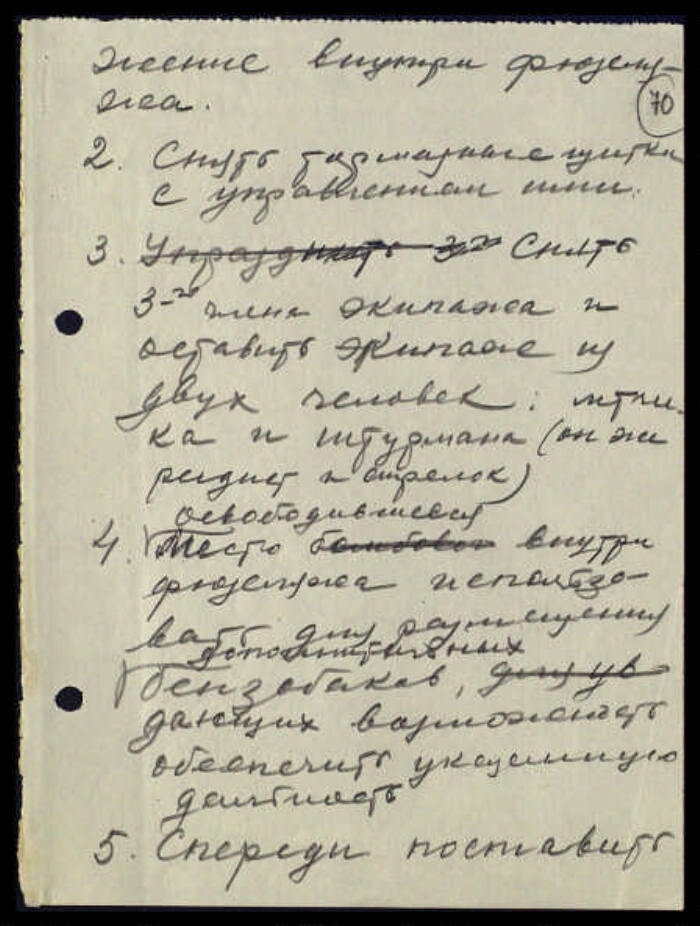 жение внутри фюзеля-
жа.
70
2. Снять тормазные щитки
с управлением ими.
3. Упразднить 3-го Снять
3-го члена экипажа и
оставить экипаж из
двух человек: летчи-
ка и штурмана (он же
радист и стрелок)
освободившееся
4. Место бомбовое внутри
фюзеляжа использо-
вать для размещения
дополнительных
бензобаков, для ув
дающих возможность
обеспечить указанную
дальность
5. Спереди поставить